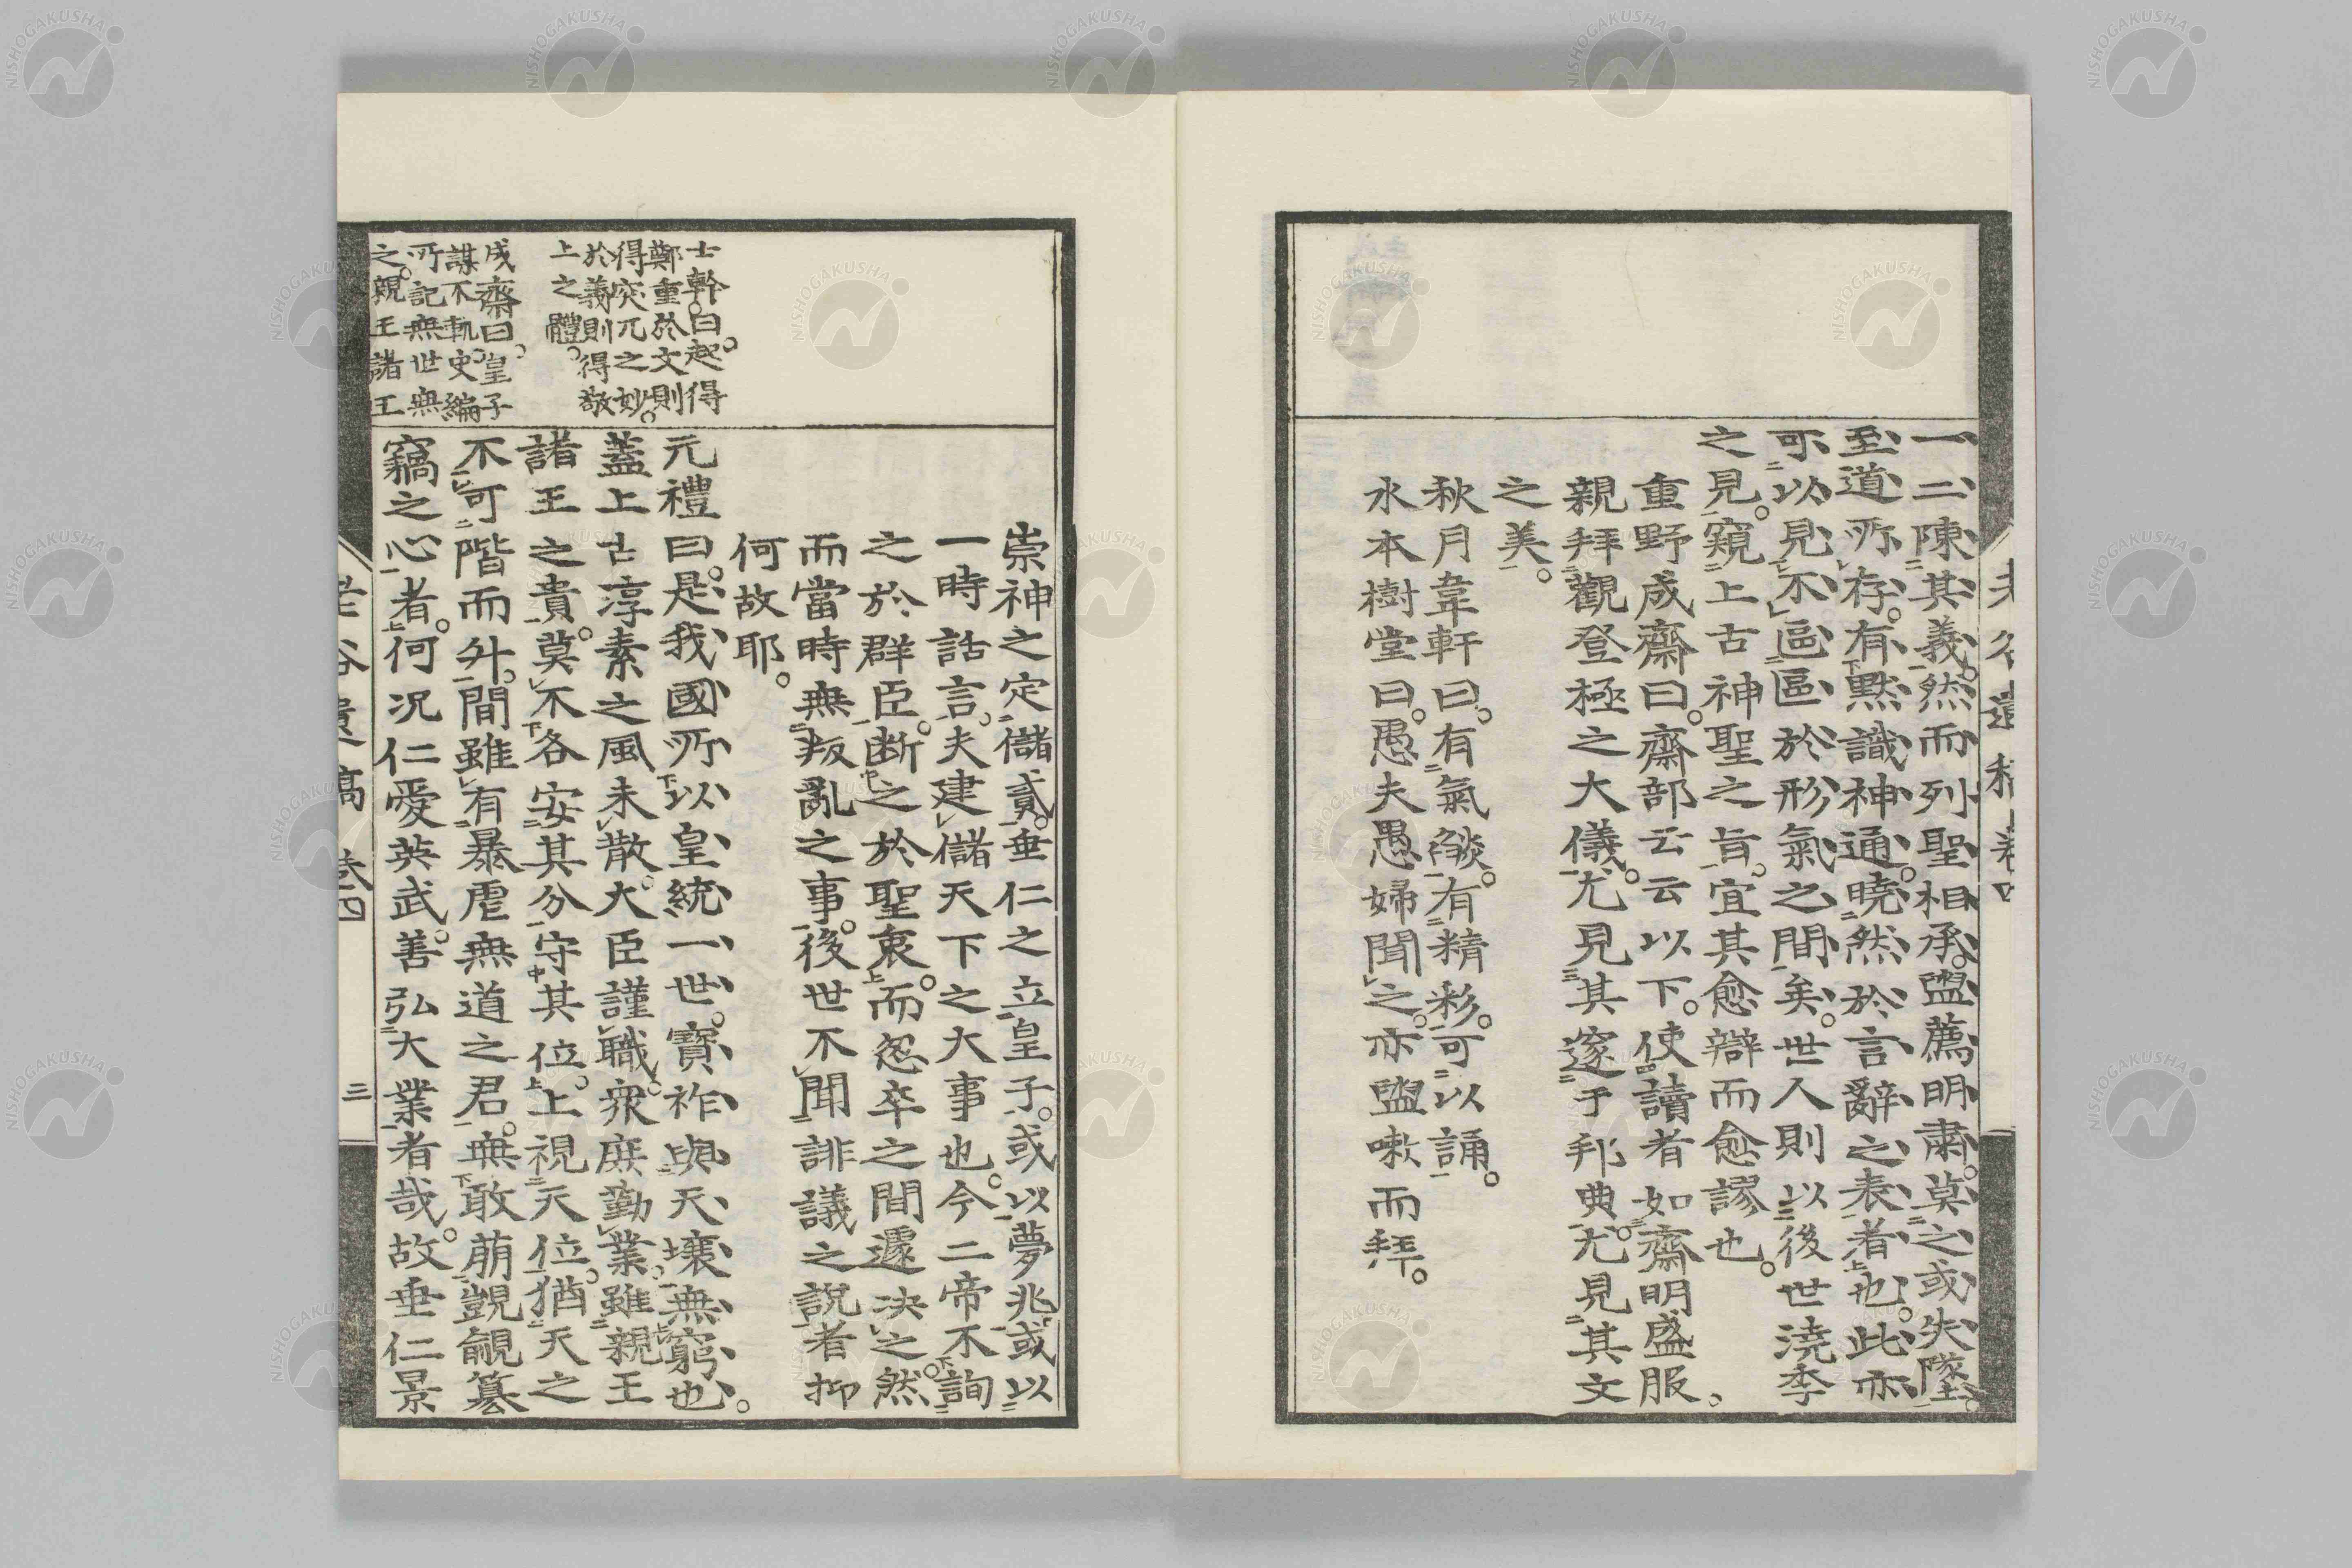 一二陳其義。然而列聖相承。盥薦明肅。莫之或失墜。
至道所存。有默識神通。曉然於言辭之表者也。此亦
可以見不區區於形氣之間矣。世人則以後世澆季
之見。窺上古神聖之旨。宜其愈辯而愈謬也。
重野成齋曰。齋部云云以下。使讀者如齋明盛服。
親拜觀登極之大儀。尤見其邃于邦典。尤見其文
之美。
秋月韋軒曰。有氣燄。有精彩。可以誦。
水本樹堂曰。愚夫愚婦聞之。亦盥嗽而拜。
崇神之定儲貳。垂仁之立皇子。或以夢兆。或以
一時詁言。夫建儲天下之大事也。今二帝不詢
之於群臣。斷之於聖衷。而怱卒之間遽決之然。
而當時無叛亂之事。後世不聞誹議之説者抑
何故耶。
士幹曰。起得
鄭重於文則
得突兀之妙。
於義則得敬
上之體。
元禮曰。是我國所以皇統一世。寶祚與天壤無窮也。
蓋上古淳素之風未散。大臣謹職。衆庶勤業。雖親王
諸王之貴。莫不各安其分。守其位。上視天位。猶天之
成齋曰。皇子
謀不軌。史編
所記無世無
之。親王諸王
不可階而升。間雖有暴虐無道之君。無敢萌覬覦簒
竊之心者。何況仁愛英武。善弘大業者哉。故垂仁景
老谷遺稿 卷四
三
NISHOGAKUSHA